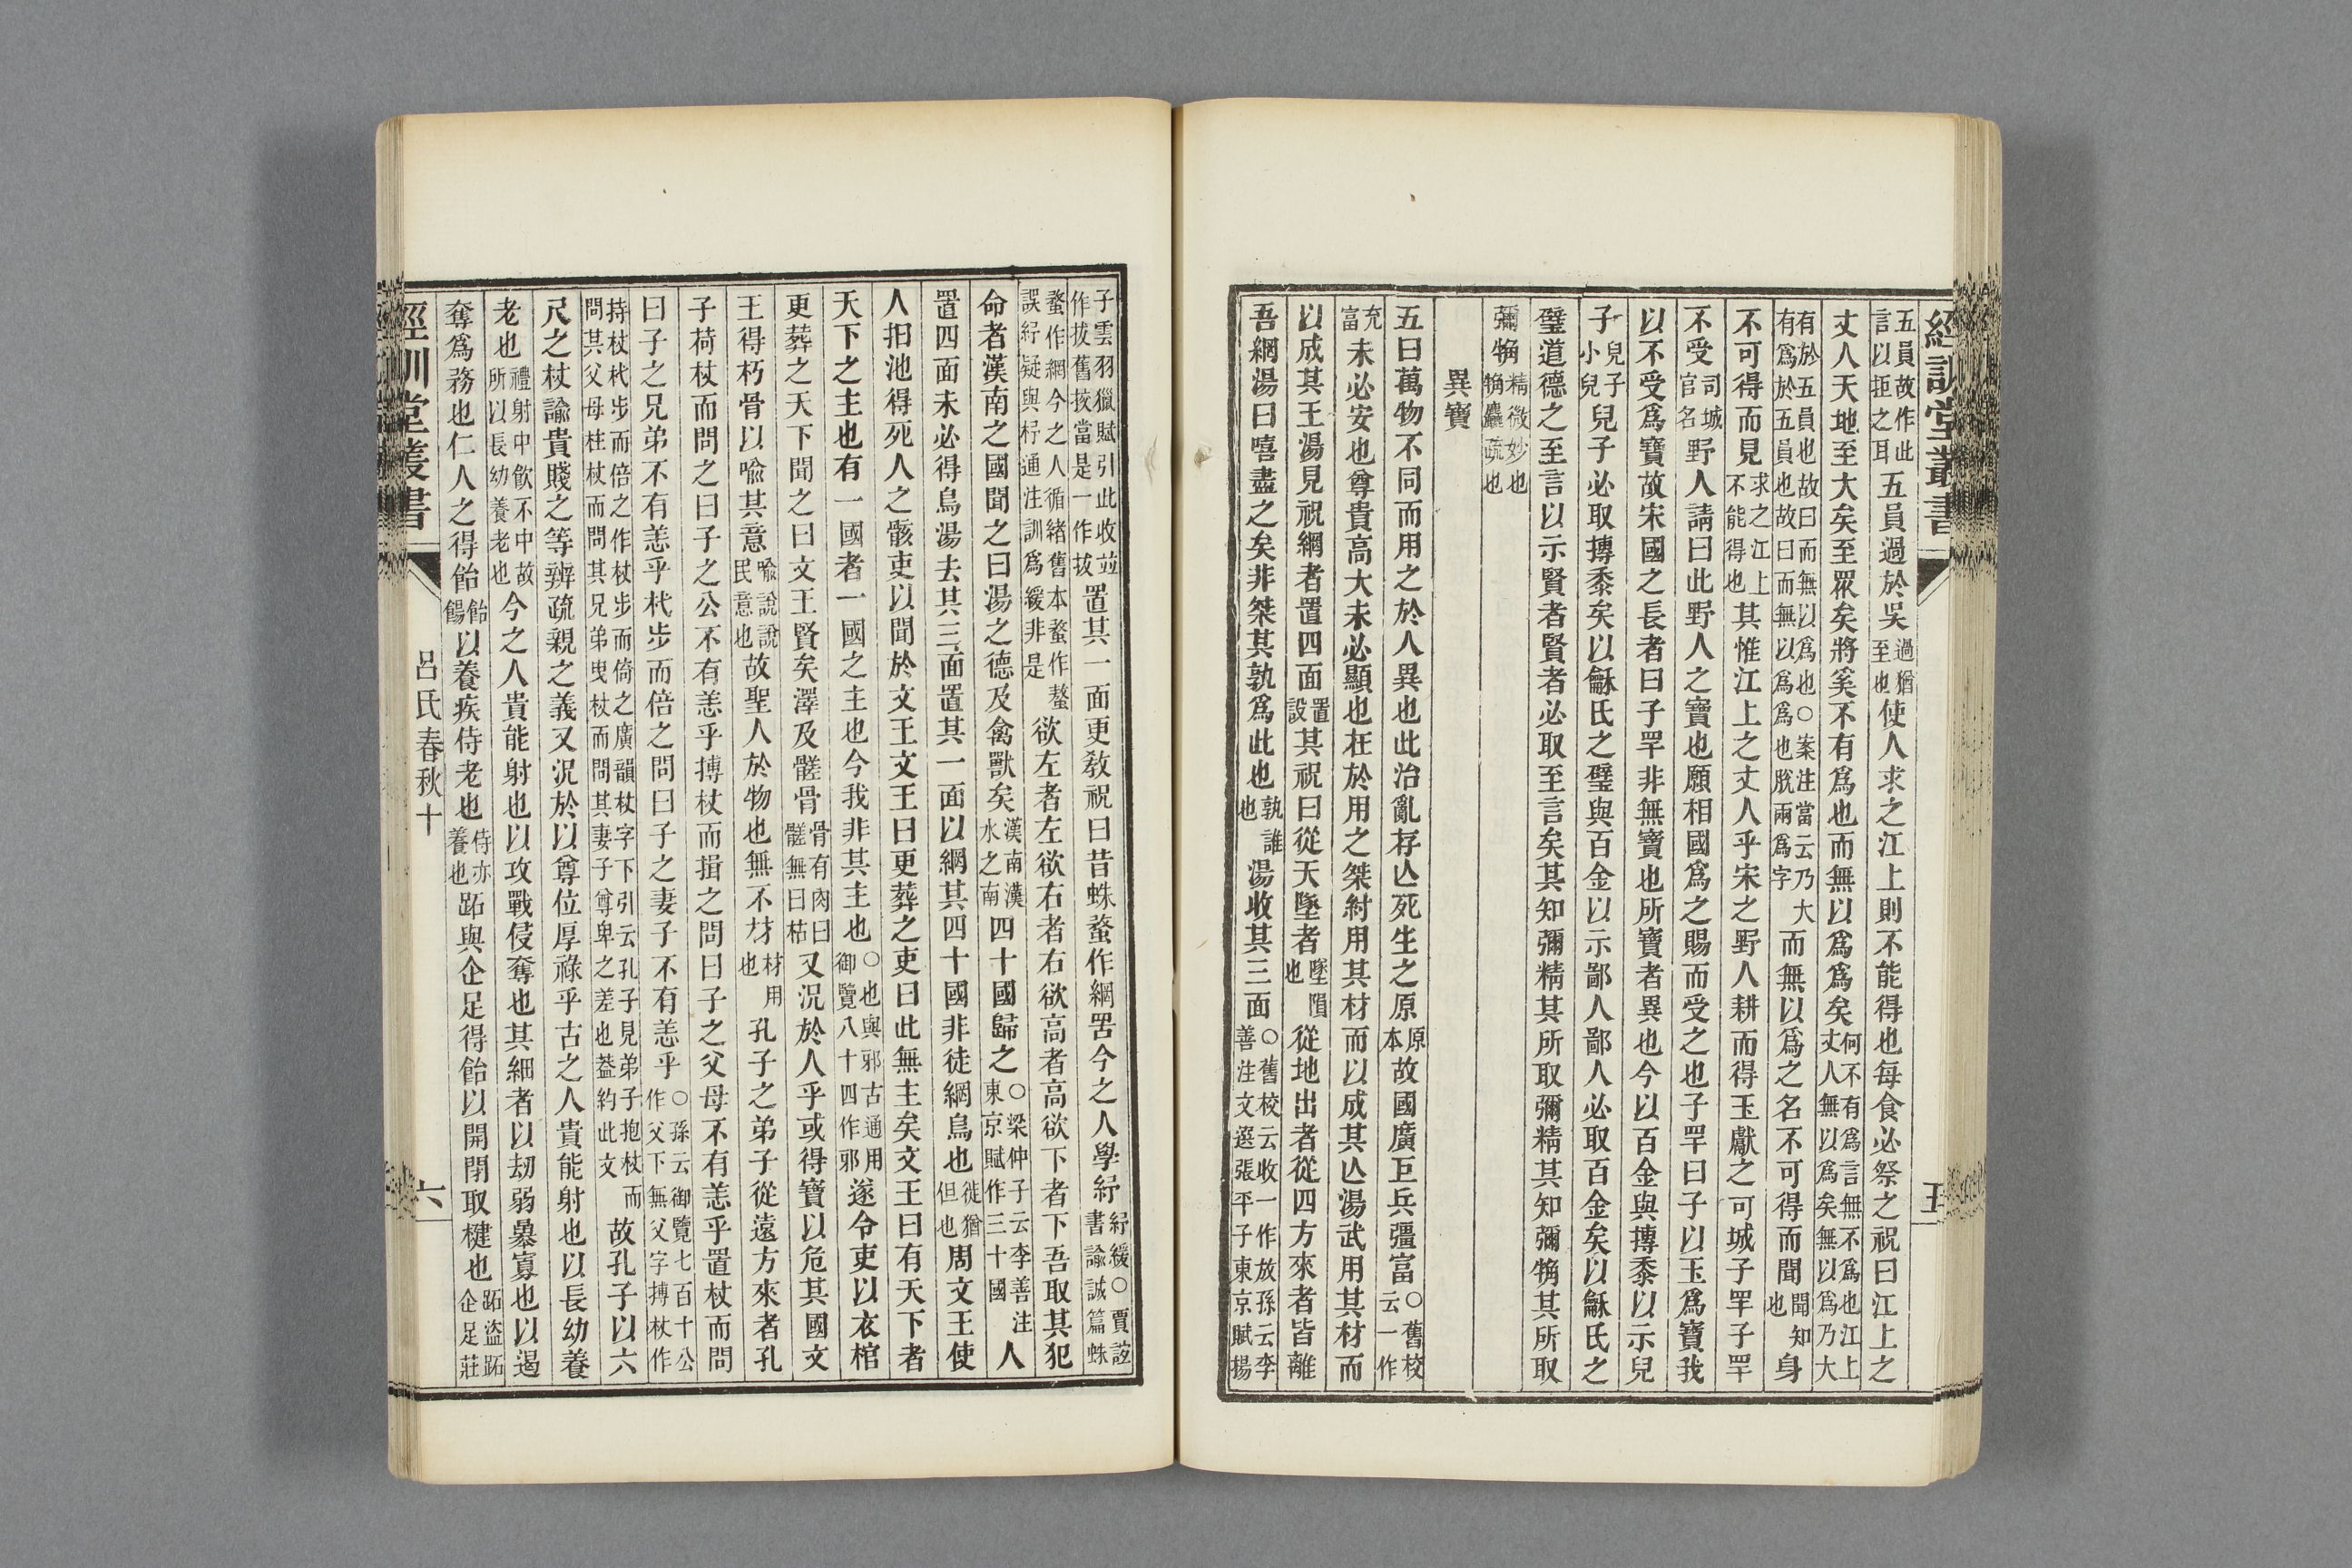 經訓堂叢書
五
五員故作此言以拒之耳五員過於吳過猶至也使人求之江上則不能得也每食必祭之祝曰江上之
丈人天地至大矣至眾矣將奚不有爲也而無以爲爲矣何不有爲言無不爲也江上丈人無以爲矣無以爲乃大
有於五員也故曰而無以爲也○案注當云乃大有爲於五員也故曰而無以爲爲也脫兩爲字而無以爲之名不可得而聞聞知也身
不可得而見求之江上不能得也其惟江上之丈人乎宋之野人耕而得玉獻之司城子罕子罕
不受司城官名野人請曰此野人之寶也願相國爲之賜而受之也子罕曰子以玉爲寶我
以不受爲寶故宋國之長者曰子罕非無寶也所寶者異也今以百金與摶黍以示兒
子兒子小兒兒子必取摶黍矣以龢氏之璧與百金以示鄙人鄙人必取百金矣以龢氏之
璧道德之至言以示賢者賢者必取至言矣其知彌精其所取彌精其知彌觕其所取
彌觕精微妙也觕麤疏也
異寶
五曰萬物不同而用之於人異也此治亂存亾死生之原原本故國廣巨兵彊富○舊校云一作
充富未必安也尊貴高大未必顯也在於用之桀紂用其材而以成其亾湯武用其材而
以成其王湯見祝網者置四面置設其祝曰從天墜者墜隕也從地出者從四方來者皆離
吾網湯曰嘻盡之矣非桀其孰爲此也孰誰也湯收其三面○舊校云收一作放孫云李善注文選張平子東京賦揚
子雲羽獵賦引此收竝作拔舊挍當是一作拔置其一面更敎祝曰昔蛛蝥作網罟今之人學紓紓緩○賈誼書諭誠篇蛛
蝥作網今之人循緒舊本蝥作螯誤紓疑與杼通注訓爲緩非是欲左者左欲右者右欲高者高欲下者下吾取其犯
命者漢南之國聞之曰湯之德及禽獸矣漢南漢水之南四十國歸之○梁仲子云李善注東京賦作三十國人
置四面未必得鳥湯去其三面置其一面以網其四十國非徒網鳥也徒猶但也周文王使
人抇池得死人之骸吏以聞於文王文王曰更葬之吏曰此無主矣文王曰有天下者
天下之主也有一國者一國之主也今我非其主也○也與邪古通用御覽八十四作邪遂令吏以衣棺
更葬之天下聞之曰文王賢矣澤及髊骨骨有肉曰髊無曰枯又況於人乎或得寶以危其國文
王得朽骨以喻其意喻說說民意也故聖人於物也無不材材用也孔子之弟子從遠方來者孔
子荷杖而問之曰子之公不有恙乎搏杖而揖之問曰子之父母不有恙乎置杖而問
曰子之兄弟不有恙乎杙步而倍之問曰子之妻子不有恙乎○孫云御覽七百十公作父下無父字搏杖作
持杖杙步而倍之作杖步而倚之廣韻杖字下引云孔子見弟子抱杖而問其父母柱杖而問其兄弟曳杖而問其妻子尊卑之差也葢約此文故孔子以六
尺之杖諭貴賤之等辨疏親之義又況於以尊位厚祿乎古之人貴能射也以長幼養
老也禮射中飲不中故所以長幼養老也今之人貴能射也以攻戰侵奪也其細者以劫弱暴寡也以遏
奪爲務也仁人之得飴飴餳以養疾侍老也侍亦養也跖與企足得飴以開閉取楗也跖盜跖企足莊
經訓堂叢書
呂氏春秋十
六